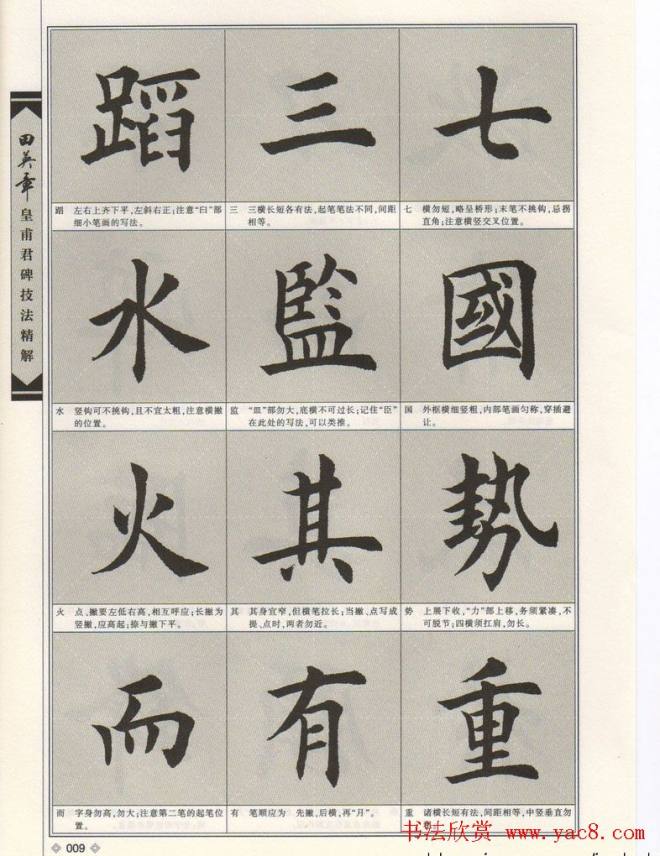 田英章
皇甫君碑技法精解
蹈 三 七
蹈 左右上齐下平,左斜右正;注意“臼”部
细小笔画的写法。
三 三横长短各有法,起笔笔法不同,间距
相等。
七 横勿短,略呈桥形;末笔不挑钩,忌拐
直角;注意横竖交叉位置。
水 監 國
水 竖钩可不挑钩,且不宜太粗,注意横撇
的位置。
监 “皿”部勿大,底横不可过长;记住“臣”
在此处的写法,可以类推。
国 外框横细竖粗,内部笔画匀称,穿插避
让。
火 其 势
火 点、撇要左低右高,相互呼应;长撇为
竖撇,应高起;捺与撇下平。
其 其身宜窄,但横笔拉长;当撇、点写成
提、点时,两者勿近。
勢 上展下收,“力”部上移,务须紧凑,不
可脱节;四横须扛肩,勿长。
而 有 重
而 字身勿高,勿大;注意第二笔的起笔位
置。
有 笔顺应为 先撇,后横,再“月”。
重 诸横长短有法,间距相等,中竖垂直勿
009
书法欣赏 www.yac8.com